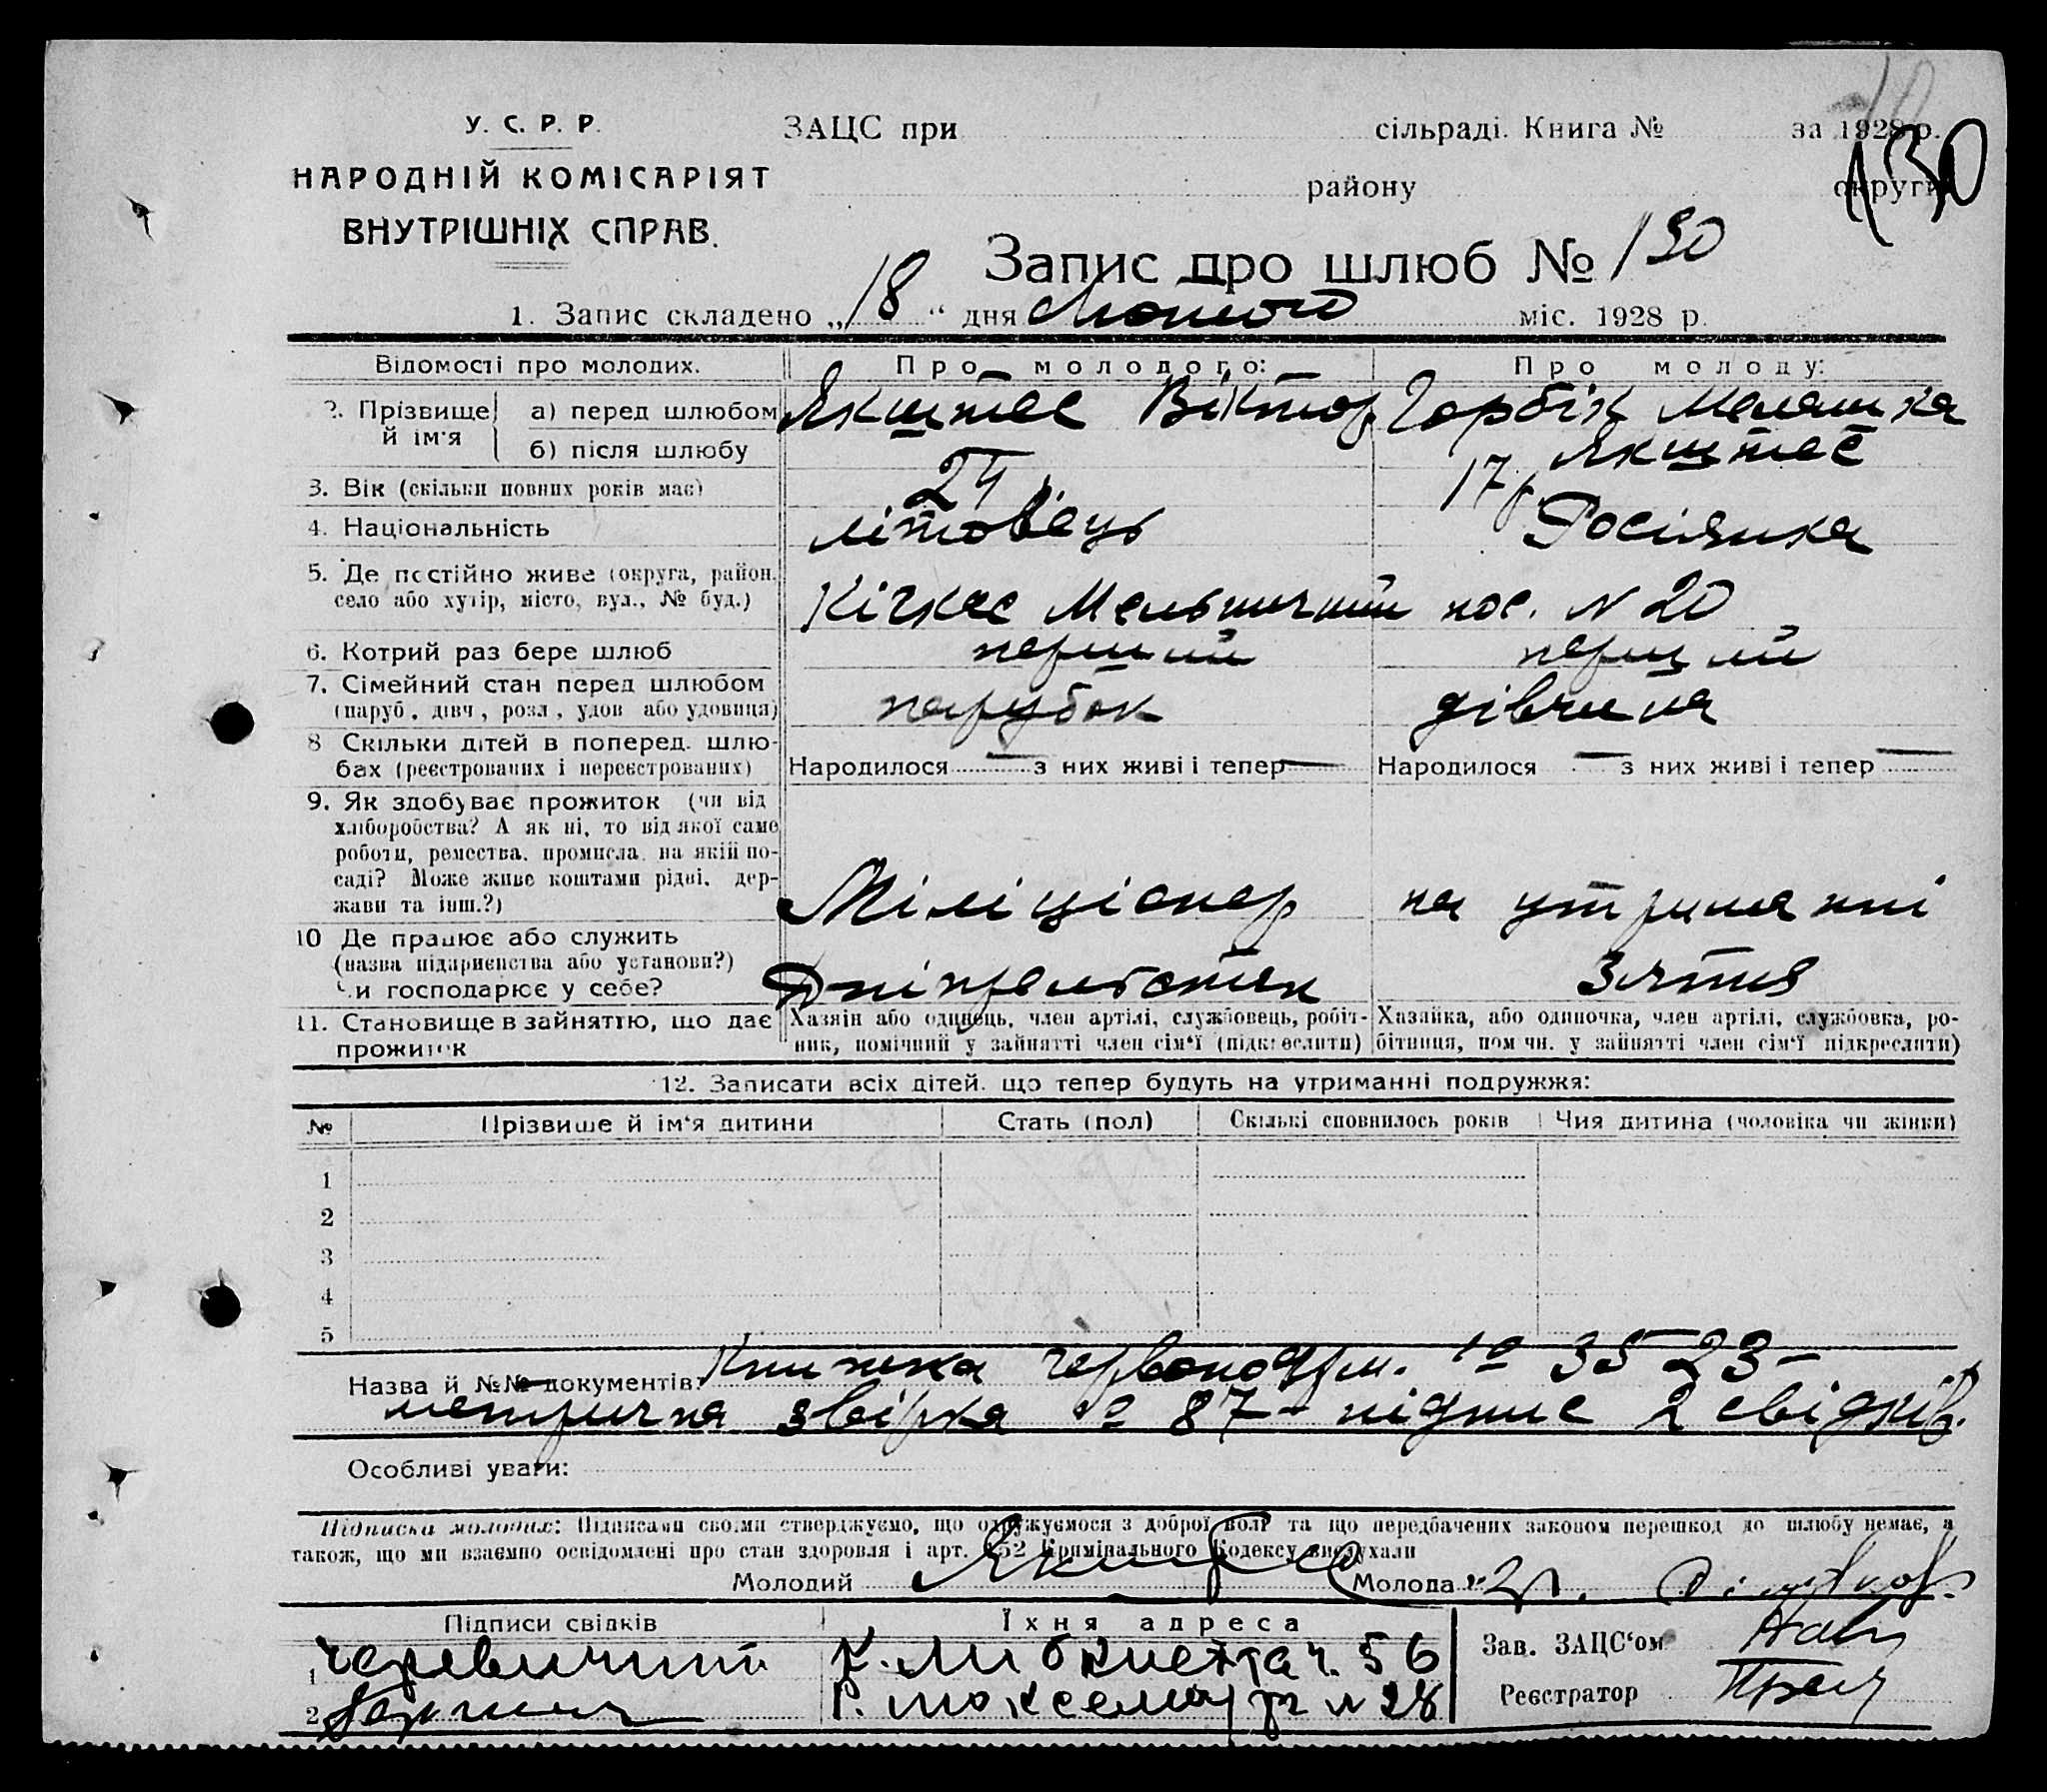 У. С. Р. Р.
НАРОДНІЙ КОМІСАРІЯТ
ВНУТРІШНІХ СПРАВ.
ЗАЦС при сільраді. Книга № за 1928 р.
району округи
130
Запис про шлюб № 130
1. Запис складено „18“ дня Лютого міс. 1928 р.
Відомості про молодих. Про молодого: Про молоду:
2. Прізвище й ім'я а) перед шлюбом Якштас Віктор Горбік Мелашка
б) після шлюбу Якштас
3. Вік (скільки повних років має) 24 17 р.
4. Національність літовець Росіянка
5. Де постійно живе (округа, район,
село або хутір, місто, вул., № буд.) Кічкас Мельничний пос. N 20
6. Котрий раз бере шлюб перший перший
7. Сімейний стан перед шлюбом
(паруб., дівч., розл., удов або удовиця) парубок дівчина
8 Скільки дітей в поперед. шлю-
бах (реєстрованих і нереєстрованих) Народилося — з них живі і тепер — Народилося — з них живі і тепер —
9. Як здобуває прожиток (чи від
хліборобства? А як ні, то від якої саме
роботи, ремества, промисла, на якій по-
саді? Може живе коштами рідні, дер-
жави та інш.?) Міліціонер на утриманні
10 Де працює або служить
(назва підприємства або установи?)
Чи господарює у себе? Дніпрельстан зятя
11. Становище в зайняттю, що дає
прожиток
Хазяін або одинець, член артілі, службовець, робіт-
ник, помічний у зайнятті член сім'ї (підкреслити)
Хазяйка, або одиночка, член артілі, службовка, ро-
бітниця, помічн. у зайнятті член сім'ї підкреслити)
12. Записати всіх дітей, що тепер будуть на утриманні подружжя:
№ Прізвище й ім'я дитини Стать (пол) Скількі сповнилось років Чия дитина (чоловіка чи жінки)
1
2
3
4
5
Назва й №№ документів: Книжка червоноарм. № 3523 –
метрична звірка № 87 – підпис 2 свідків.
Особливі уваги:
Підписка молодих: Підписами своїми стверджуємо, що одружуємося з доброї волі та що передбачених законом перешкод до шлюбу немає, а
також, що ми взаємно освідомлені про стан здоровля і арт. 152 Кримінального Кодексу вислухали
Молодий Молода
Підписи свідків Їхня адреса
1 Черевичний К. Либкнехта ч. 56
2 Р. N 28
Зав. ЗАЦС'ом
Реєстратор